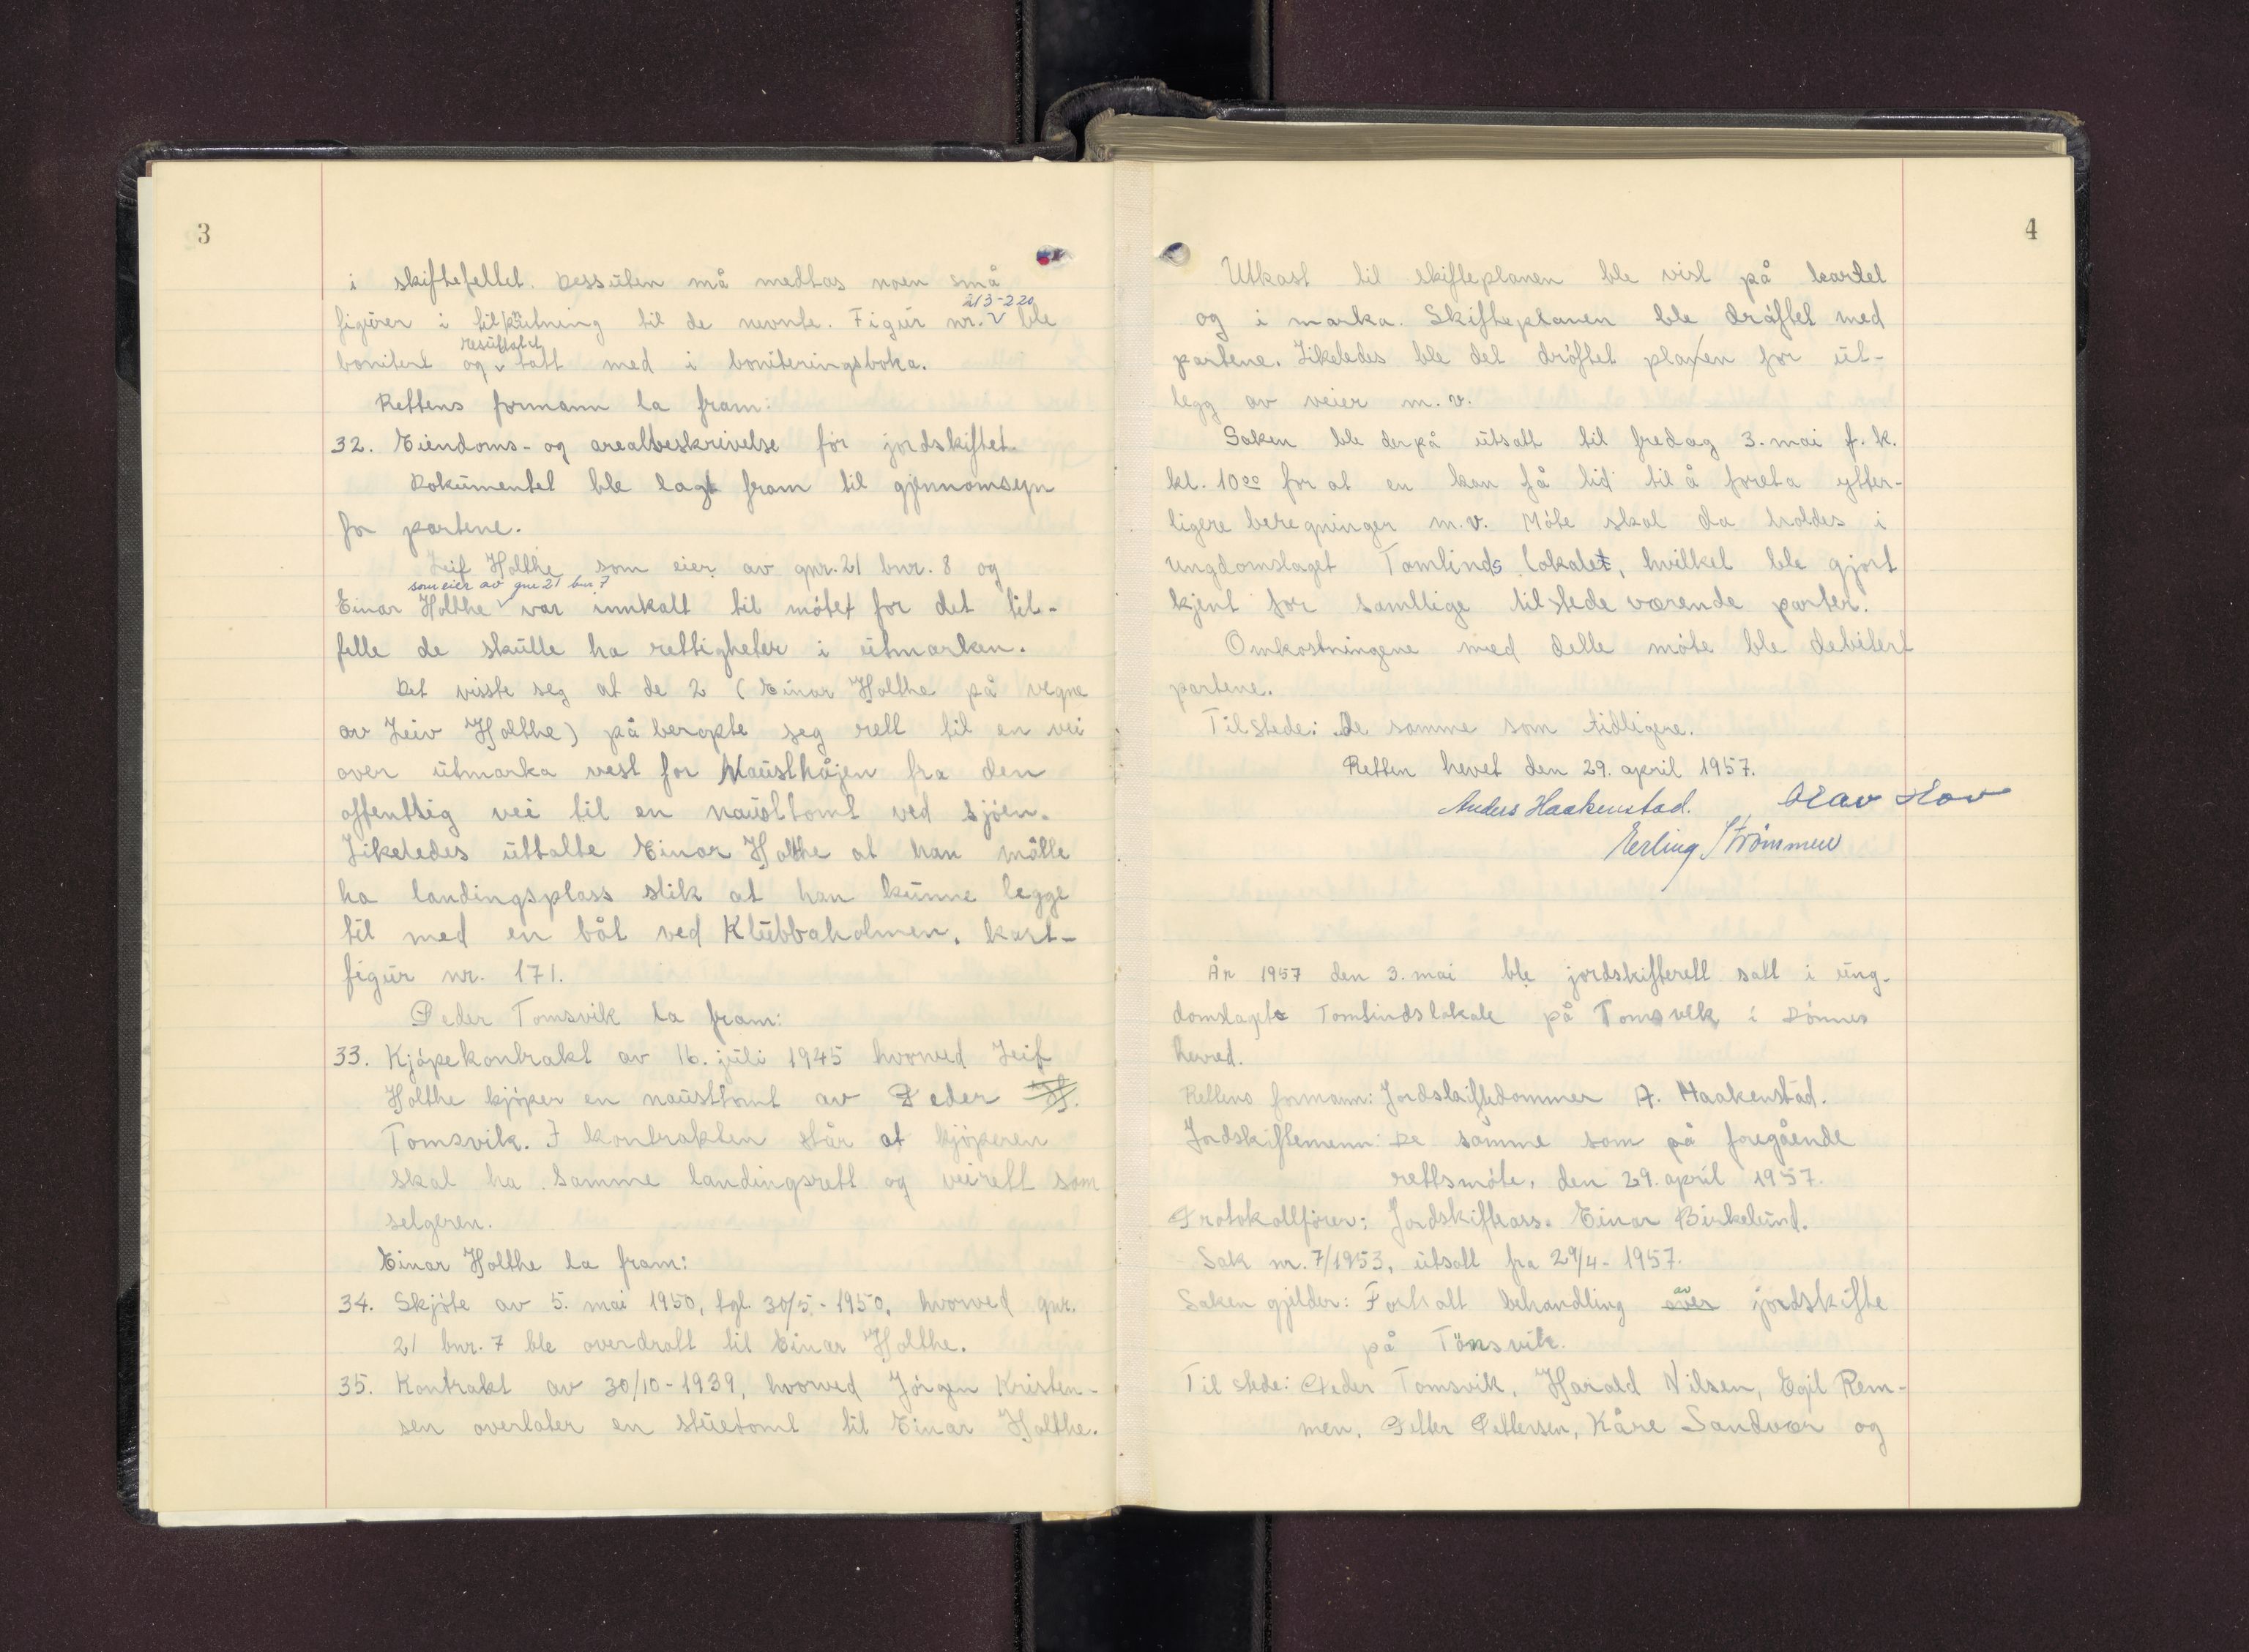 3
i skiftefeltet. Dessuten må medtas noen små
figurer i tilknütning til de nevnte. Figur nr. 213-220 ble
bonitert og resultatet tatt med i boniteringsboka.
Rettens formann la fram:
32. Eiendoms- og arealbeskrivelse for jordskiftet.
Dokumentet ble lagt fram til gjennomsyn
for partene.
Leif Holthe som eier av gnr. 21 bnr. 8 og
Einar Holthe som eier av gnr 21 bnr. 7 var innkalt til møtet for det til-
felle de skulle ha rettigheter i utmarken.
Det visste seg at de 2 (Einar Holthe på vegne
av Leiv Holthe) på beropte seg rett til en vei
over utmarka vest for Nausthåjen fra den
offentlig vei til en nausttomt ved sjøen.
Likeledes uttalte Einar Holthe at han måtte
ha landingsplass slik at han kunne legge
til med en båt ved Klubbaholmen, kart-
figur nr. 171.
Peder Tomsvik la fram:
33. Kjøpekontrakt av 16. juli 1945 hvorved Leif
Holthe kjøper en nausttomt av Peder
Tomsvik. I kontrakten står at kjøperen
skal ha samme landingsrett og veirett som
selgeren.
Einar Holthe la fram:
34. Skjøte av 5. mai 1950, tgl. 30/5-1950, hvorved gnr.
21 bnr. 7 ble overdratt til Einar Holthe.
35. Kontrakt av 30/10-1939, hvorved Jørgen Kristen-
sen overlater en stuetomt til Einar Holthe.
4
Utkast til skifteplanen ble vist på kartet
og i marka. Skifteplanen ble drøftet med
partene. Likeledes ble det drøftet planen for ut-
legg av veier m.v.
Saken ble derpå utsatt til fredag 3. mai f.k.
kl. 10⁰⁰ for at en kan få tid til å foreta ytter-
ligere beregninger m.v. Møte skal da holdes i
ungdomslaget Tomtinds lokalet, hvilket ble gjort
kjent for samtlige tilstede værende parter.
Omkostningene med dette møte ble debitert
partene.
Tilstede: De samme som tidligere.
Retten hevet den 29. april 1957.
Anders Haakenstad. Olav Hov
Erling Strømmen
År 1957 den 3. mai ble jordskifterett satt i ung-
domslagets Tomtindslokale på Tomsvik i Dønnes
herred.
Rettens formann: Jordskiftedommer A. Haakenstad.
Jordskiftemenn: De samme som på foregående
rettsmøte, den 29. april 1957.
Protokollfører: Jordskifteass. Einar Birkelund.
Sak nr. 7/1953, utsatt fra 29/4-1957.
Saken gjelder: Forhatt behandling over av jordskifte
på Tomsvik.
Til stede: Peder Tomsvik, Harald Nilsen, Egil Rem-
men, Petter Pettersen, Kåre Sandvær og